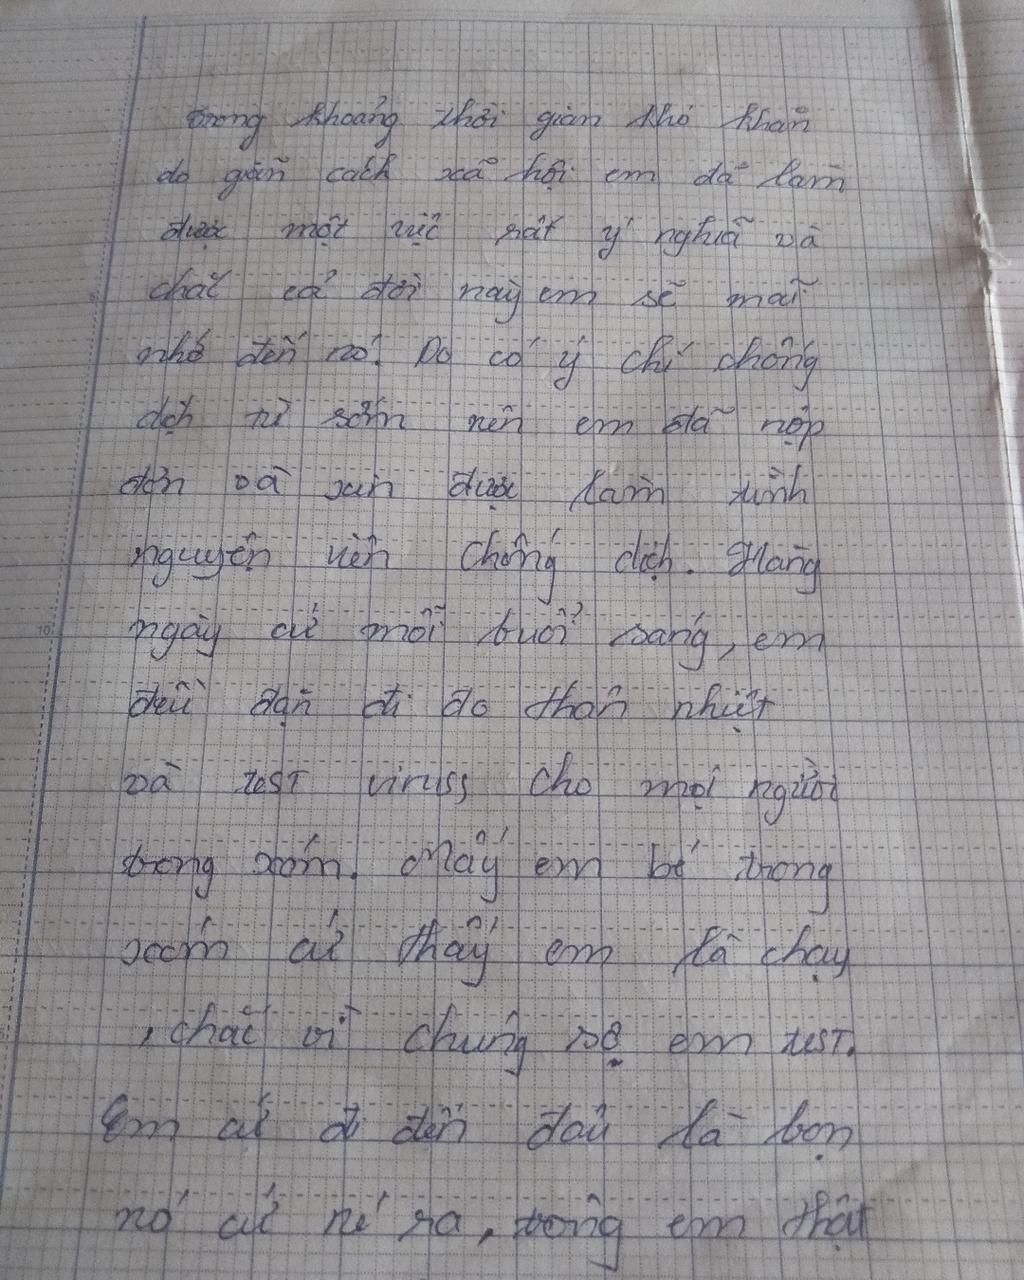 trong khoảng thời gian khó khăn
do giãn cách xã hội em đã làm
được một việc rất ý nghĩa và
chắc cả đời này em sẽ mãi
nhớ đến nó. Do có ý chí chống
dịch từ sớm nên em đã nộp
đơn và xin được làm tình
nguyện viên chống dịch. Hàng
ngày cứ mỗi buổi sáng, em
đều đặn đi đo thân nhiệt
và test viruss cho mọi người
trong xóm. Mấy em bé trong
xóm cứ thấy em là chạy
, chắc vì chúng sợ em test.
Em cứ đi đến đâu là bọn
nó cứ né ra, trông em thật